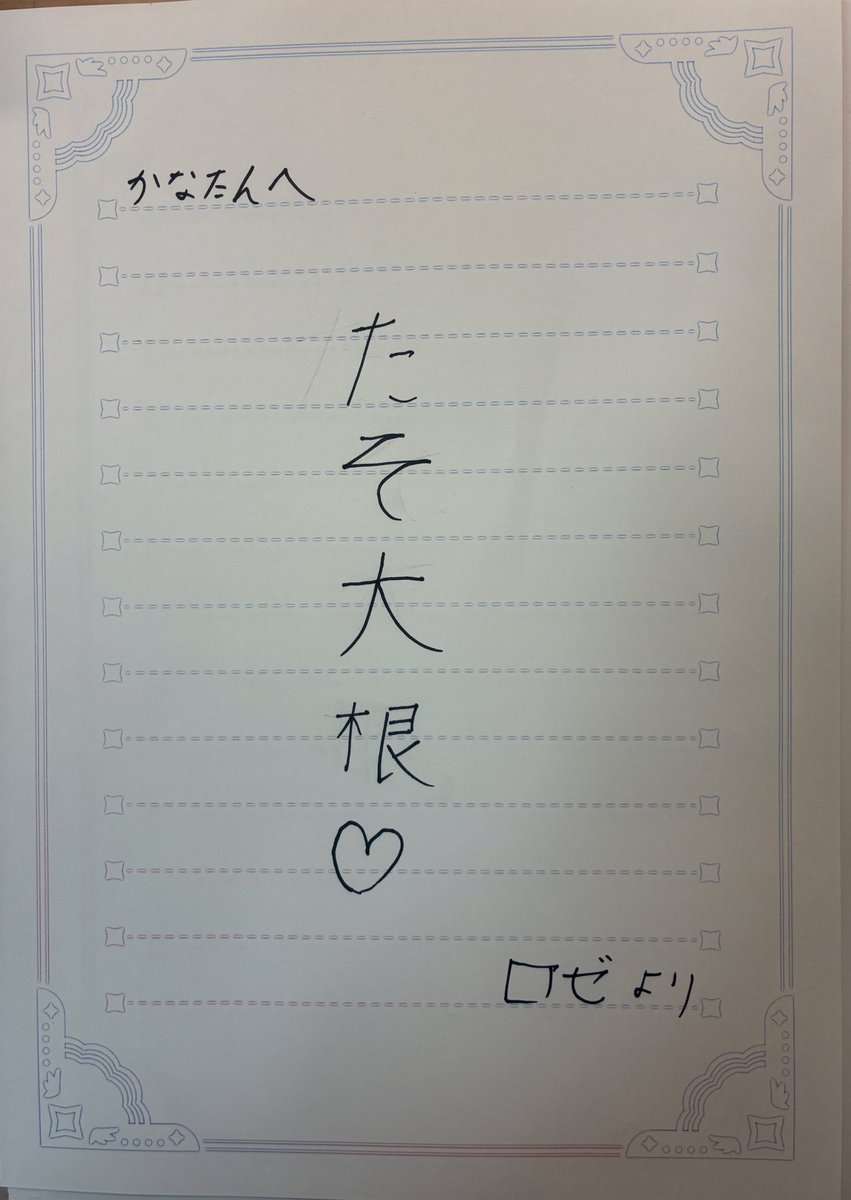 かなたんへ
たそ大根♡
ロゼより